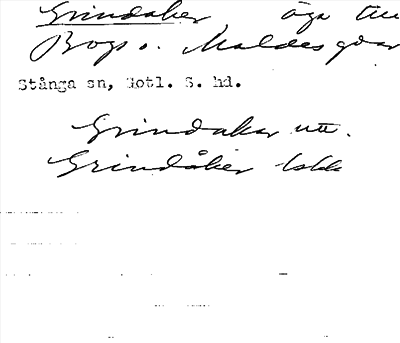 Grindåker, äga till
Bogs o. Maldes gdar
Stånga sn, Gotl. S. hd.
Grindakar utt.
Grindåker 1st